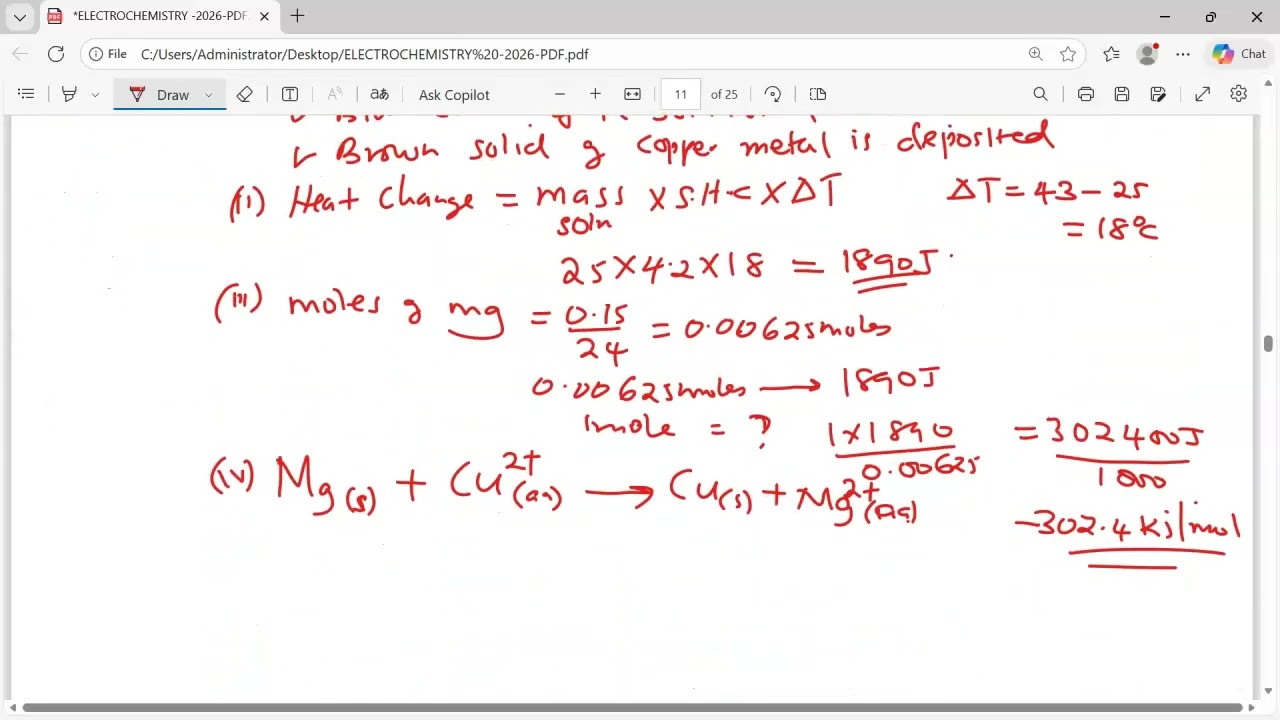 *ELECTROCHEMISTRY -2026-PDF.
File C:/Users/Administrator/Desktop/ELECTROCHEMISTRY%20-2026-PDF.pdf Chat
Draw Ask Copilot 11 of 25
Brown solid of copper metal is deposited
(ii) Heat Change = mass soln × S.H.C × ΔT
ΔT = 43 - 25
= 18°C
25 × 4.2 × 18 = 1890J
(iii) moles of mg = 0.15/24 = 0.00625moles
0.00625moles → 1890J
1mole = ? 1×1890/0.00625 = 302400J/1000
-302.4 Kj/mol
(iv) Mg(s) + Cu²⁺(aq) → Cu(s) + Mg²⁺(aq)